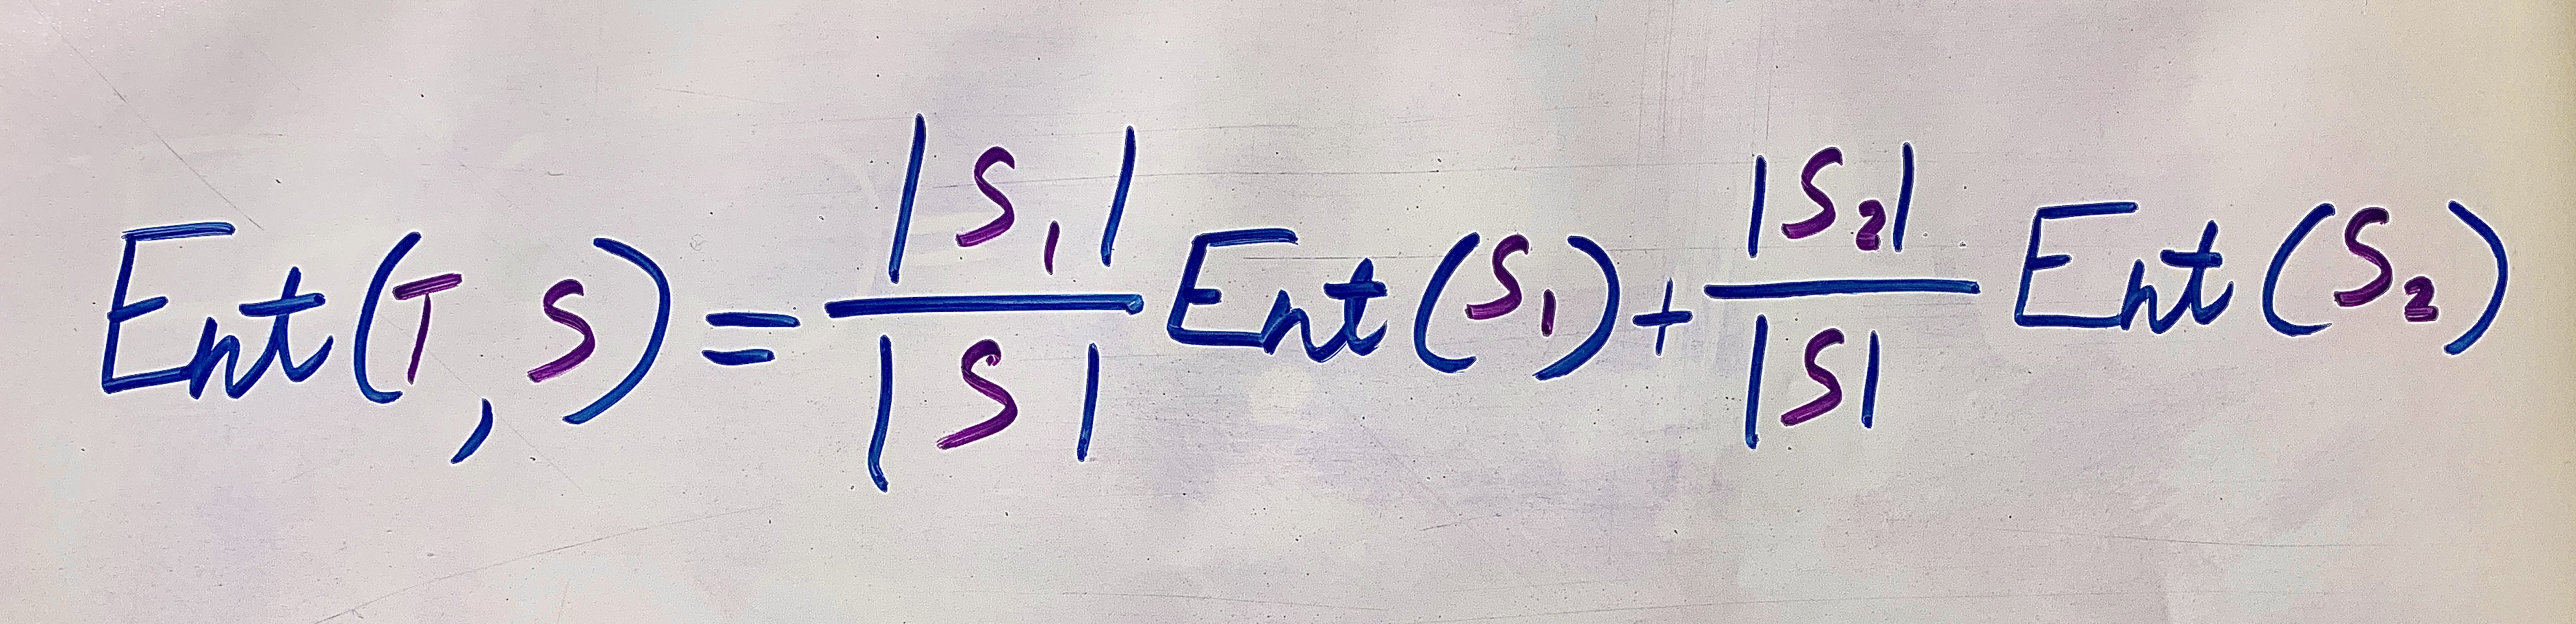 Ent(T, S) = \frac{|S_1|}{|S|} Ent(S_1) + \frac{|S_2|}{|S|} Ent(S_2)